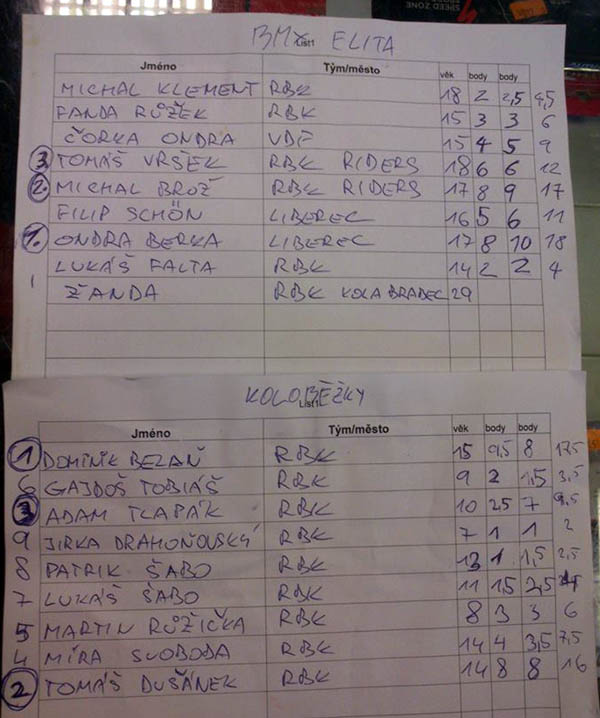 SPEED ZONE
BMX List1 ELITA
Jméno Tým/město věk body body
MICHAL KLEMENT RBK 18 2 2,5 4,5
FANDA RŮŽEK RBK 15 3 3 6
ČORKA ONDRA VDF 15 4 5 9
3 TOMÁŠ VRŠEK RBK RIDERS 18 6 6 12
2. MICHAL BROŽ RBK RIDERS 17 8 9 17
FILIP SCHÖN LIBEREC 16 5 6 11
1. ONDRA BERKA LIBEREC 17 8 10 18
LUKÁŠ FALTA RBK 14 2 2 4
ŽANDA RBK KOLA BRADEC 29
KOLOBĚŽKY List1
Jméno Tým/město věk body body
1 DOMINIK BEZAŇ RBK 15 9,5 8 17,5
6 GAJDOŠ TOBIÁŠ RBK 9 2 1,5 3,5
3 ADAM TLAPÁK RBK 10 2,5 7 9,5
9 JIRKA DRAHOŇOVSKÝ RBK 7 1 1 2
8 PATRIK ŠABO RBK 13 1 1,5 2,5
7 LUKÁŠ ŠABO RBK 11 1,5 2,5 4
5 MARTIN RŮŽIČKA RBK 8 3 3 6
4 MÍRA SVOBODA RBK 14 4 3,5 7,5
2 TOMÁŠ DUŠÁNEK RBK 14 8 8 16